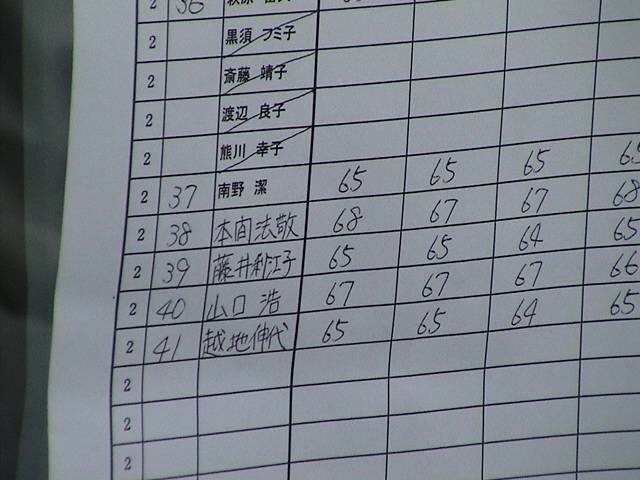 2 36
2 黒須 フミ子
2 斎藤 靖子
2 渡辺 良子
2 熊川 幸子
2 37 南野 潔 65 65 65 65
2 38 本間法敬 68 67 67 68
2 39 藤井利江子 65 65 64 65
2 40 山口 浩 67 67 67 66
2 41 越地伸代 65 65 64 65
2
2
2